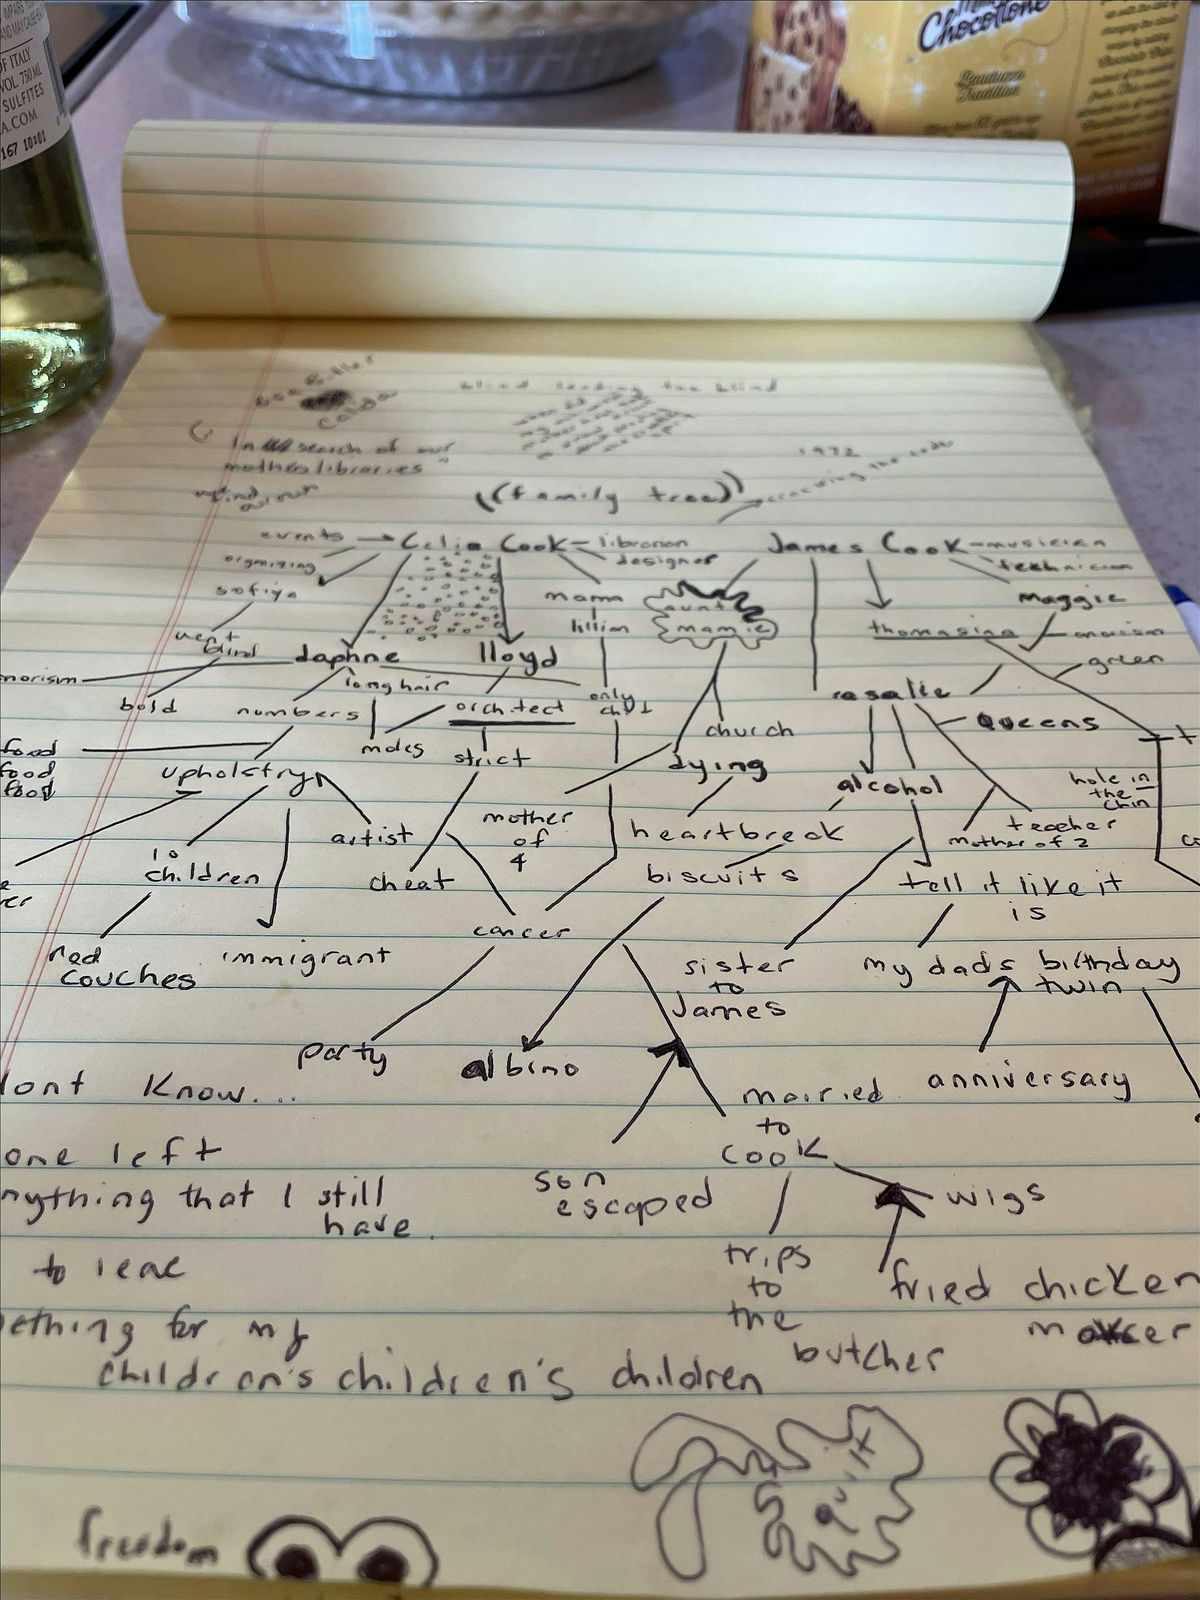 IMPAIRS
AND MAY CAUSE
OF ITALY
VOL 750 ML
SULFITES
A.COM
167 10:01
Chocottone
Bauducco
Tradition
blind leading the blind
In search of our
mothers libraries"
1972
cracking the code
((family tree))
events
Celia Cook
librarian
James Cook
musician
organizing
designer
technician
sofiya
mama
lillian
aunt
mamie
maggie
thomasina
went
blind
daphne
lloyd
green
long hair
only
child
rosalie
bold
numbers
architect
Queens
church
food
food
food
moles
strict
upholstry
dying
alcohol
hole in
the
chin
artist
mother
of
4
heartbreak
teacher
mother of 2
10
children
cheat
biscuits
tell it like it
is
cancer
red
couches
immigrant
sister
to
James
my dads birthday
twin
party
albino
anniversary
dont know...
married
to
cook
one left
son
escaped
nything that I still
have.
wigs
to leae
trips
to
the
butcher
fried chicken
ething for my
children's children's children
quilt
freedom